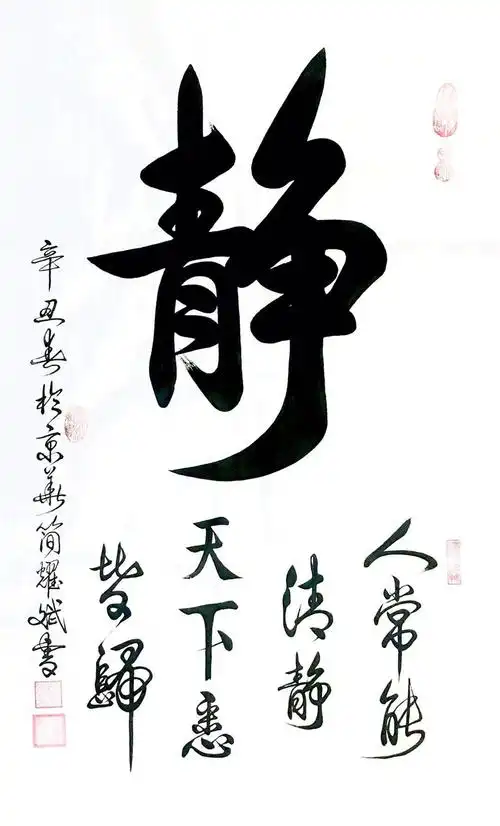 静
人常能
清静
天下悉
皆歸
辛丑春於京華简耀斌書